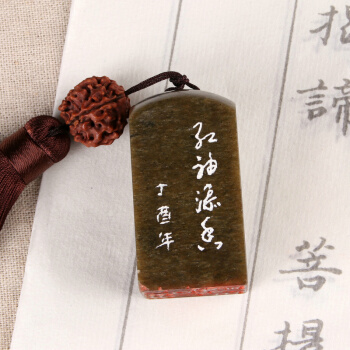 红袖添香
丁酉年
揭諦
菩提